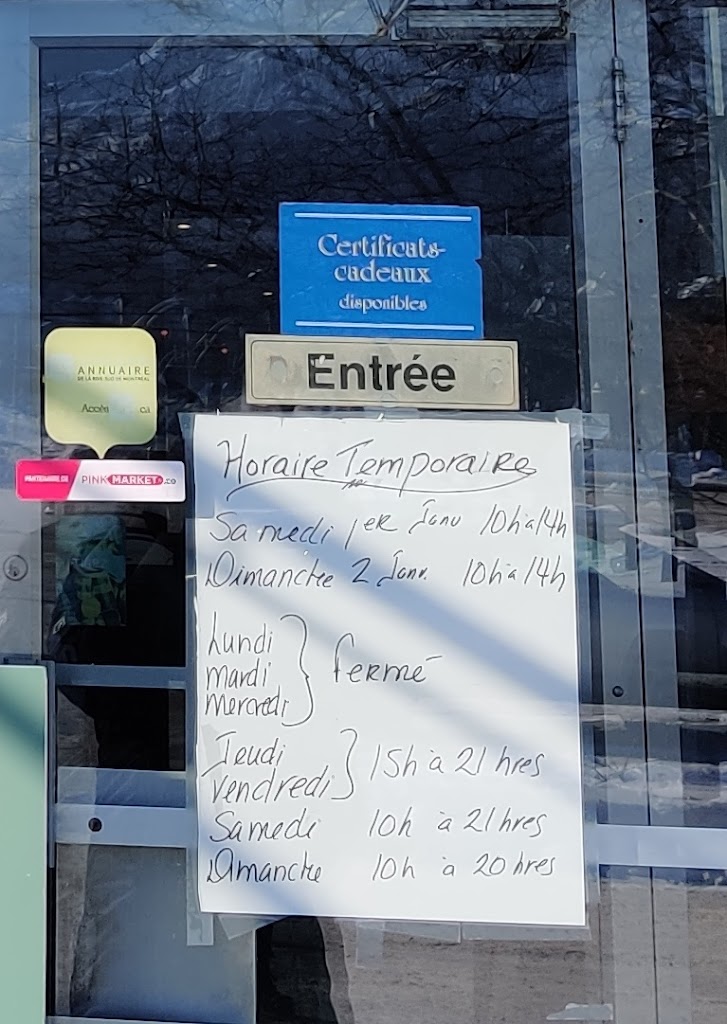 Certificats-
cadeaux
disponibles
Entrée
ANNUAIRE
DE LA RIVE-SUD DE MONTRÉAL
PINK MARKET.co
Horaire Temporaire
Samedi 1er Janv 10h à 14h
Dimanche 2 Janv. 10h à 14h
Lundi
mardi
mercredi
fermé
Jeudi
vendredi
15h à 21hres
Samedi 10h à 21hres
Dimanche 10h à 20hres